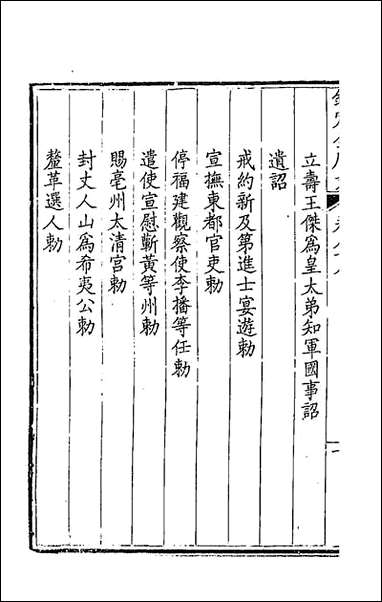 立壽王傑爲皇太弟知軍國事詔
遺詔
戒約新及第進士宴遊勅
宣撫東都官吏勅
停福建觀察使李播等任勅
遣使宣慰蘄黃等州勅
賜亳州太清宮勅
封丈人山爲希夷公勅
釐革選人勅